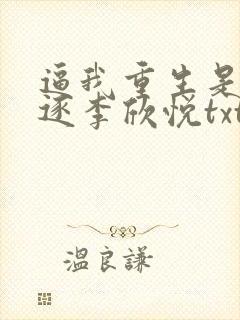 逼我重生是
逐李欣悦txt
温良謙